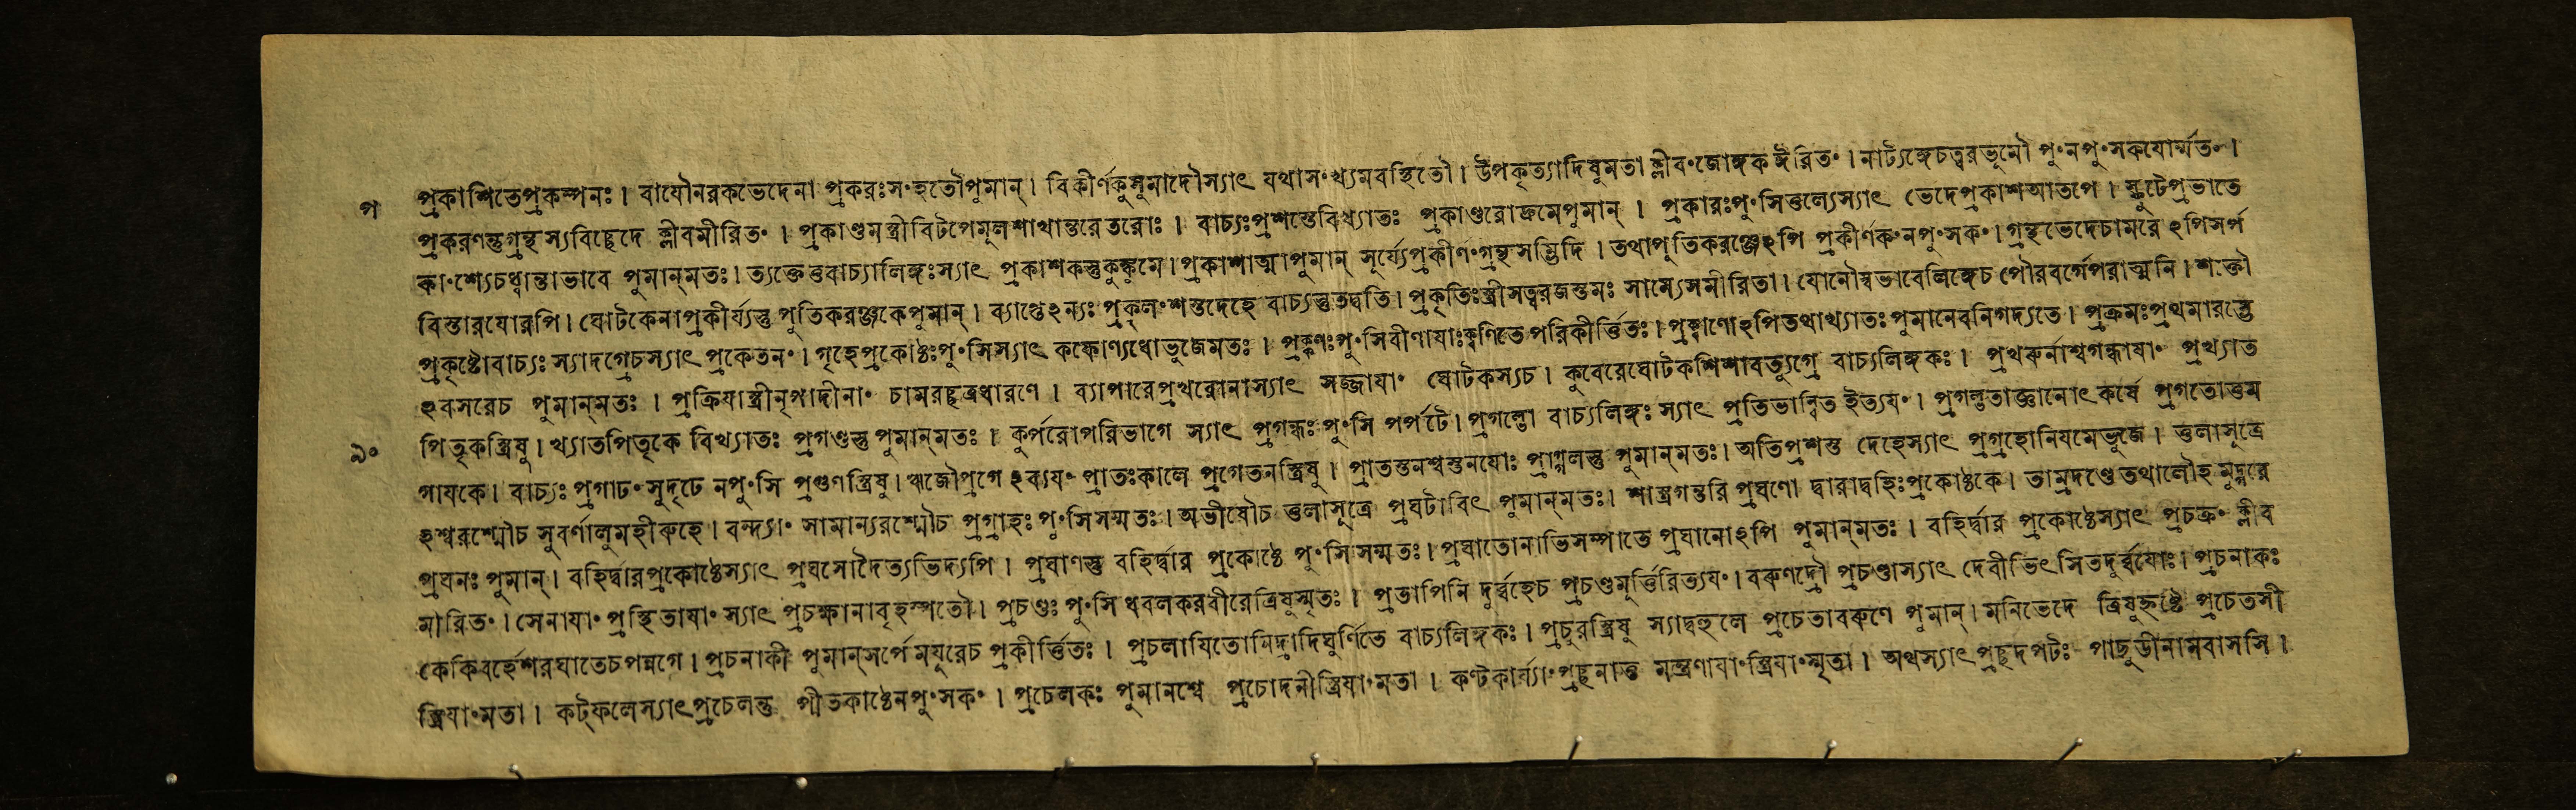 প প্রকাশিতেপ্রকম্পনঃ। বাযৌনরকভেদেনা প্রকরঃসংহতৌপুমান্। বিকীর্ণকুসুমাদৌস্যাৎ যথাসংখ্যমবস্থিতৌ। উপকৃত্যাদিষুমতা ক্লীবংজোঙ্গকঈরিতং। নাট্যঙ্গেচত্বরভূমৌ পুংনপুংসকযোর্ম্মতং।
প্রকরণন্তুগ্রন্থস্যবিচ্ছেদে ক্লীবমীরিতং। প্রকাণ্ডমস্ত্রীবিটপেমূলশাখান্তরেতরোঃ। বাচ্যঃপ্রশস্তেবিখ্যাতঃ প্রকাণ্ডরোদ্রুমেপুমান্। প্রকারঃপুংসিতুল্যেস্যাৎ ভেদেপ্রকাশআতপে। স্ফুটেপ্রভাতে
কাংশ্যেচধ্বান্তাভাবে পুমান্মতঃ। ত্যক্তেতুবাচ্যালিঙ্গঃস্যাৎ প্রকাশকস্তুকুঙ্কুমে। প্রকাশাত্মাপুমান্ সূর্য্যেপ্রকীর্ণংগ্রন্থসম্ভিদি। তথাপুতিকরঞ্জেঽপি প্রকীর্ণকংনপুংসকং। গ্রন্থভেদেচামরে ঽপিসর্প
বিস্তারযোরপি। ঘোটকেনাপ্রকীর্য্যস্তু পুতিকরঞ্জকেপুমান্। ব্যাপ্তেঽন্যঃ প্রকূলংশস্তদেহে বাচ্যস্তুতদ্বতি। প্রকৃতিঃস্ত্রীসত্বরজস্তমঃ সাম্যেসমীরিতা। যোনৌস্বভাবেলিঙ্গেচ পৌরবর্গেপরাত্মনি। শক্তৌ
প্রকৃষ্টোবাচ্যঃ স্যাদগ্রেচস্যাৎ প্রকেতনং। গৃহেপ্রকোষ্ঠঃপুংসিস্যাৎ কফোণ্যধোভুজেমতঃ। প্রক্বণঃপুংসিবীণাযাঃক্বণিতে পরিকীর্ত্তিতঃ। প্রক্বাণোঽপিতথাখ্যাতঃ পুমানেবনিগদ্যতে। প্রক্রমঃপ্রথমারম্ভে
ঽবসরেচ পুমান্মতঃ। প্রক্রিযাস্ত্রীনৃপাদীনাং চামরছত্রধারণে। ব্যাপারেপ্রখরোনাস্যাৎ সজ্জাযাং ঘোটকস্যচ। কুবেরেঘোটকশিশাবত্যুগ্রে বাচ্যলিঙ্গকঃ। প্রথরুর্নাশ্বগন্ধাযাং প্রখ্যাত
১০ পিতৃকস্ত্রিষু। খ্যাতপিতৃকে বিখ্যাতঃ প্রগণ্ডস্তু পুমান্মতঃ। কুর্পরোপরিভাগে স্যাৎ প্রগন্ধঃ পুংসি পর্পটে। প্রগল্ভো বাচ্যলিঙ্গঃ স্যাৎ প্রতিভান্বিত ইত্যযং। প্রগল্ভতাজ্ঞানোৎকর্ষে প্রগতোত্তম
গাযকে। বাচ্যঃ প্রগাঢংসুদৃঢে নপুংসি প্রগুণস্ত্রিষু। ঋজৌপ্রগে ঽব্যযং প্রাতঃকালে প্রগেতনস্ত্রিষু। প্রাতস্তনশ্বস্তনযোঃ প্রাগ্গলস্তু পুমান্মতঃ। অতিপ্রশস্ত দেহেস্যাৎ প্রগ্রহোনিযমেভুজে। তুলাসূত্রে
ঽশ্বরশ্মৌচ সুবর্ণালুমহীরুহে। বন্দ্যাং সামান্যরশ্মৌচ প্রগ্রাহঃ পুংসিসম্মতঃ। অভীষৌচ তুলাসূত্রে প্রঘটাবিৎ পুমান্মতঃ। শাস্ত্রগন্তরি প্রঘণো দ্বারাদ্বহিঃপ্রকোষ্ঠকে। তাম্রদণ্ডেতথালৌহ মুদ্গরে
প্রঘনঃ পুমান্। বহির্দ্বারপ্রকোষ্ঠেস্যাৎ প্রঘসোদৈত্যভিদ্যপি। প্রঘাণস্তু বহির্দ্বার প্রকোষ্ঠে পুংসিসম্মতঃ। প্রঘাতোনাভিসম্পাতে প্রঘানোঽপি পুমান্মতঃ। বহির্দ্বার প্রকোষ্ঠেস্যাৎ প্রচক্রং ক্লীব
মীরিতং। সেনাযাং প্রস্থিতাযাং স্যাৎ প্রচক্ষানাবৃহস্পতৌ। প্রচণ্ডঃ পুংসি ধবলকরবীরেত্রিষুস্মৃতঃ। প্রতাপিনি দুর্ব্বহেচ প্রচণ্ডমূর্ত্তিরিত্যযং। বরুণদ্রৌ প্রচণ্ডাস্যাৎ দেবীভিৎ সিতদুর্ব্বযোঃ। প্রচনাকঃ
কেকিবর্হেশরঘাতেচপন্নগে। প্রচনাকী পুমান্সর্পেমযুরেচ প্রকীর্ত্তিতঃ। প্রচলাযিতোনিদ্রাদিঘুর্ণিতে বাচ্যলিঙ্গকঃ। প্রচুরস্ত্রিষু স্যাদ্বহুলে প্রচেতাবরুণে পুমান্। মনিভেদে ত্রিষুহৃষ্টে প্রচেতসী
স্ত্রিযাংমতা। কট্ফলেস্যাৎপ্রচেলন্তু পীতকাষ্ঠেনপুংসকং। প্রচেলকঃ পুমানশ্বে প্রচোদনীস্ত্রিযাংমতা। কণ্টকার্য্যাংপ্রছনাতু মন্ত্রণাযাংস্ত্রিযাংস্মৃতা। অথস্যাৎপ্রছদপটঃ পাছুডীনামবাসসি।